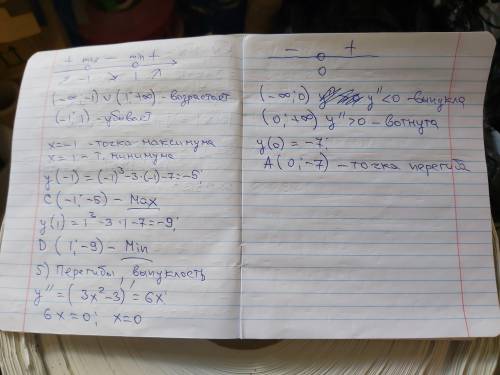 + max - min +
-1 1
(-∞; -1) ∪ (1; +∞) - возрастает
(-1; 1) - убывает
x = -1 - точка максимума
x = 1 - т. минимума
y(-1) = (-1)³-3·(-1)-7=-5;
C(-1; -5) - Max
y(1) = 1³-3·1-7=-9;
D (1; -9) - Min
5) Перегибы, выпуклость
y'' = (3x²-3)' = 6x;
6x = 0; x=0
- +
0
(-∞; 0) y''<0 - выпукла
(0; +∞) y''>0 - вогнута
y(0) = -7;
A(0; -7) - точка перегиба